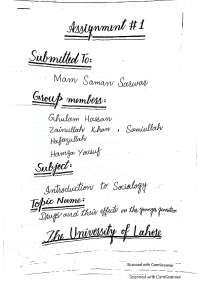 Assignment #1
Submitted To:
Mam Saman Sarwar
Group members:
Ghulam Hassan
Zainullah Khan , Samiullah
Hafizullah
Hamza Yousuf
Subject:
Introduction to Sociology
Topic Name:
Drugs and their effects on the younger generation
The University of Lahore
Scanned with CamScanner
Scanned with CamScanner